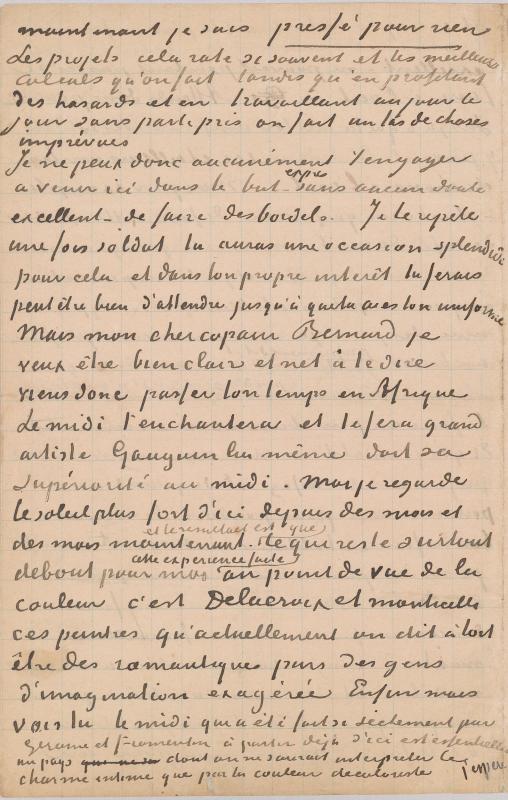 maintenant je suis pressé pour rien
Les projets cela rate si souvent et les meilleurs
calculs qu'on fait tandis qu'en profitant
des hasards et en travaillant au jour le
jour sans parti pris on fait un tas de choses
imprévues
Je ne peux donc aucunément t'engager
a venir ici dans le but exprès sans aucun doute
excellent – de faire des bordels. Je le repète
une fois soldat tu auras une occasion splendide
pour cela et dans ton propre interêt tu ferais
peut être bien d'attendre jusqu'à que tu aies ton uniforme
Mais mon cher copain Bernard je
veux être bien clair et net à te dire
viens donc passer ton temps en Afrique
Le midi t'enchantera et te fera grand
artiste Gauguin lui même doit sa
supériorité au midi. Moi je regarde
le soleil plus fort d'ici depuis des mois et
des mois maintenant. et le resultat est que
cette expérience faite ce qui reste surtout
debout pour moi au point de vue de la
couleur c'est Delacroix et Monticelli
ces peintres qu'actuellement on dit à tort
être des romantiques purs des gens
d'imagination exagérée Enfin mais
vois tu le midi qui a été fait si sèchement par
Gerome et Fromentin à partir déjà d'ici est essentiellement
un pays dont on ne saurait interpréter le
charme intime que par la couleur du coloriste j'espère